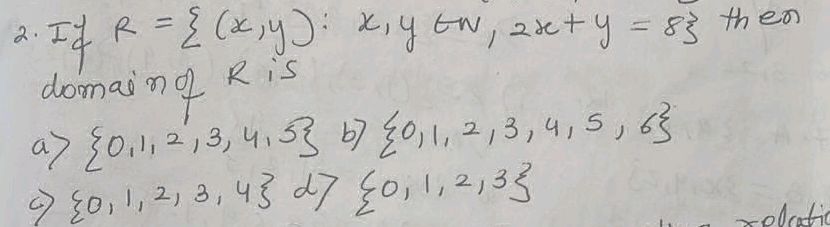 2. If R = { (x,y): x,y ∈ N, 2x+y = 8} then
domain of R is
a) {0,1, 2, 3, 4, 5} b) {0,1, 2, 3, 4, 5, 6}
c) {0, 1, 2, 3, 4} d) {0, 1, 2, 3}